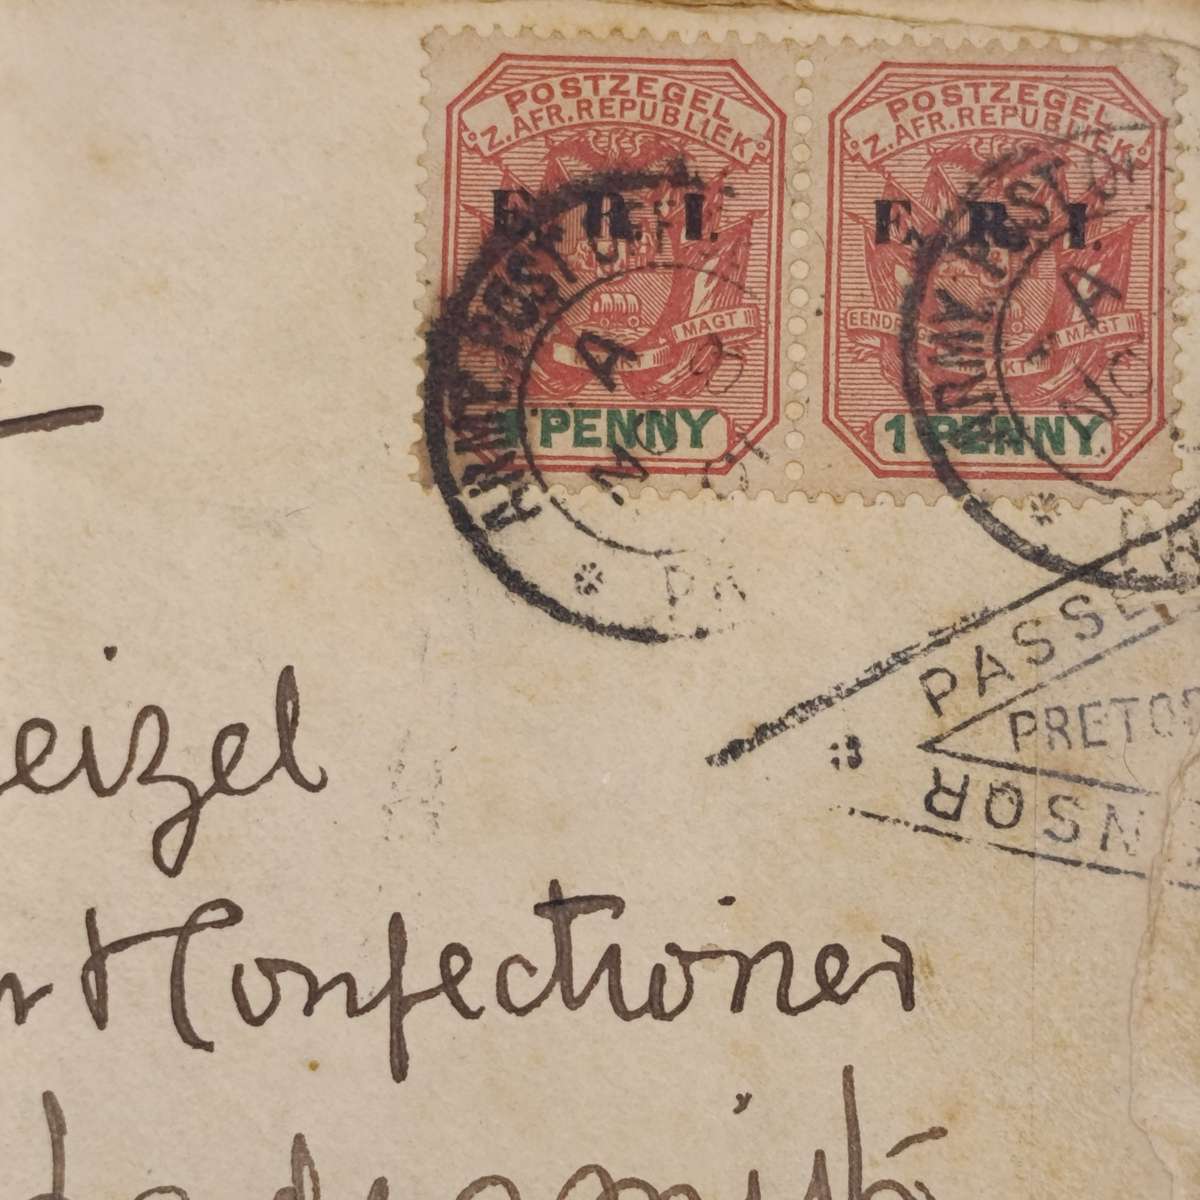 POSTZEGEL
Z.AFR.REPUBLIEK
E. R. I.
MAGT
1 PENNY
POSTZEGEL
Z.AFR.REPUBLIEK
E. R. I.
EENDR
MAGT
1 PENNY
ARMY POST
A
NO
ARMY POST
A
NO
PASSE
PRETOR
NSOR
eizel
Confectioner